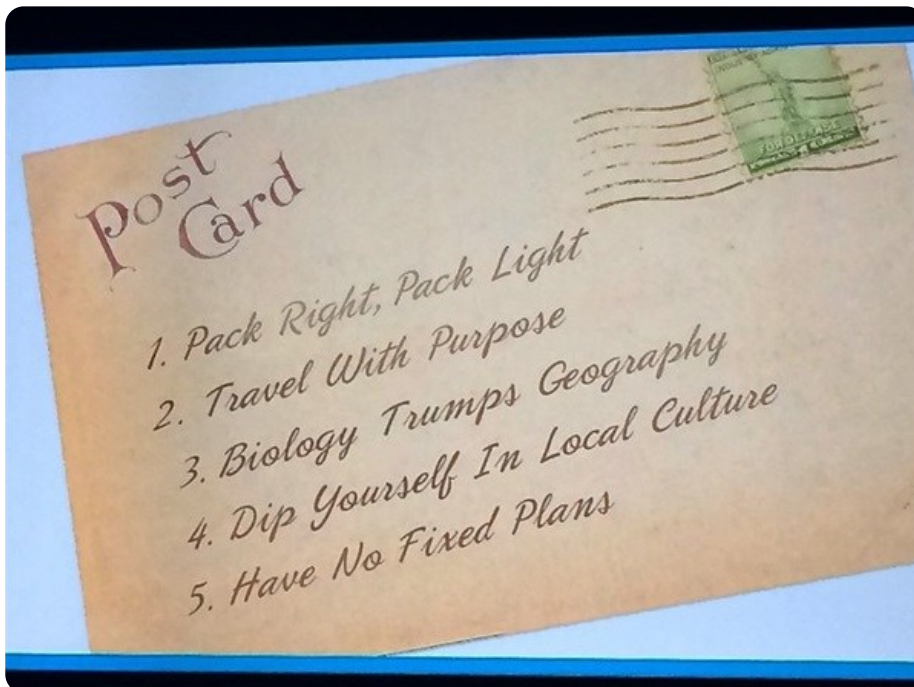 Post
Card
INDUSTRY AGRI
FOR DEFENSE
1. Pack Right, Pack Light
2. Travel With Purpose
3. Biology Trumps Geography
4. Dip Yourself In Local Culture
5. Have No Fixed Plans